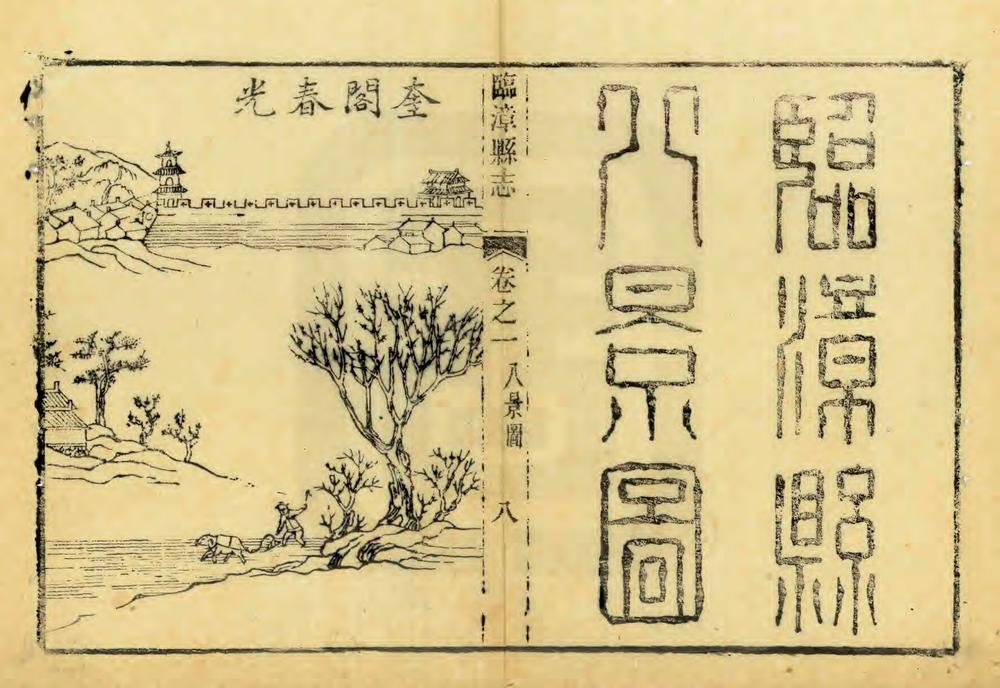 臨漳縣
八景圖
臨漳縣志
卷之一
八景圖
八
奎閣春光